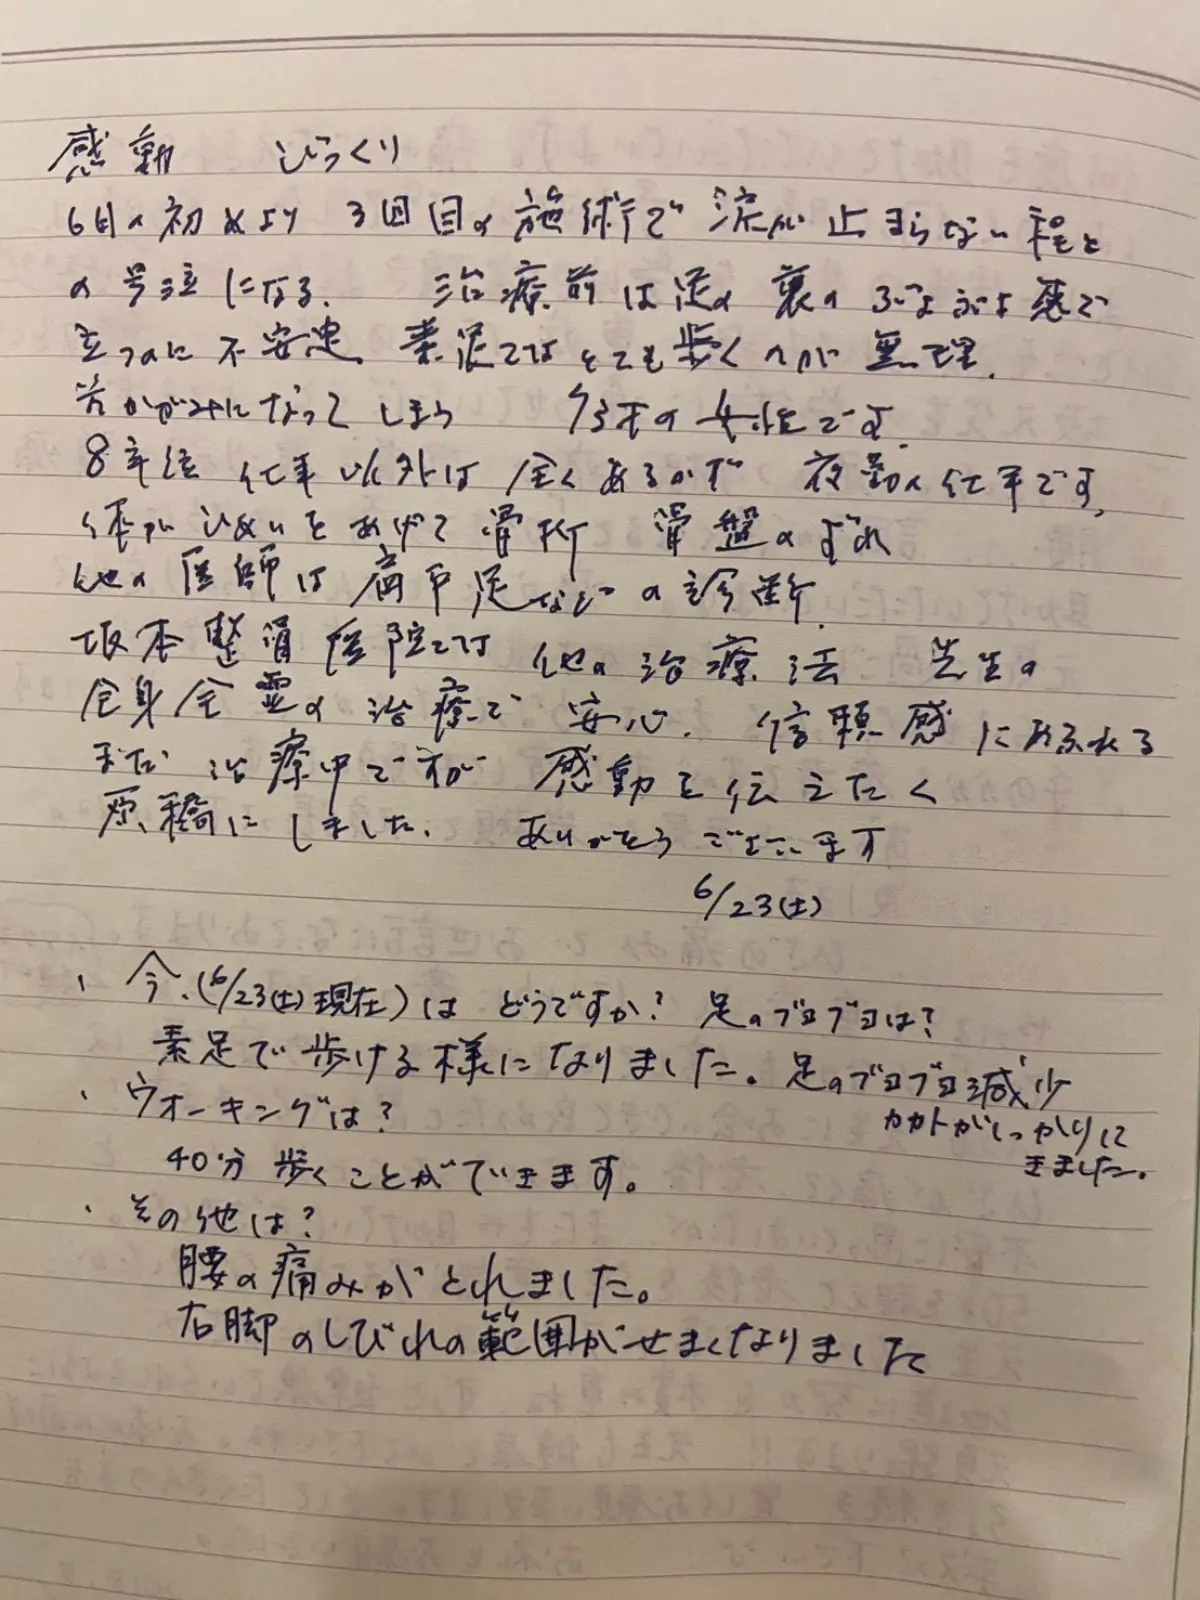 感動 びっくり
6月の初めより 3回目の施術で 涙が止まらない程と
の号泣になる. 治療前は足の裏の ぶよぶよ感で
立つのに不安定、素足ではとても歩くのが無理.
前かがみになってしまう 73才の女性です.
8年位 仕事以外は全くあるかず 夜勤の仕事です,
体が をあげて骨折 骨盤のずれ
他の医師は扁平足などの診断.
坂本整骨医院では 他の治療法 先生の
全身全霊の治療で 安心. 信頼感にあふれる
まだ治療中ですが 感動を伝えたく
原稿にしました. ありがとうございます
6/23(土)
・今、(6/23(土)現在)は どうですか? 足のブヨブヨは?
素足で歩ける様になりました。足のブヨブヨ減少
カカトがしっかりに
きました。
・ウォーキングは?
40分歩くことができます。
・その他は?
腰の痛みがとれました。
右脚のしびれの範囲がせまくなりました